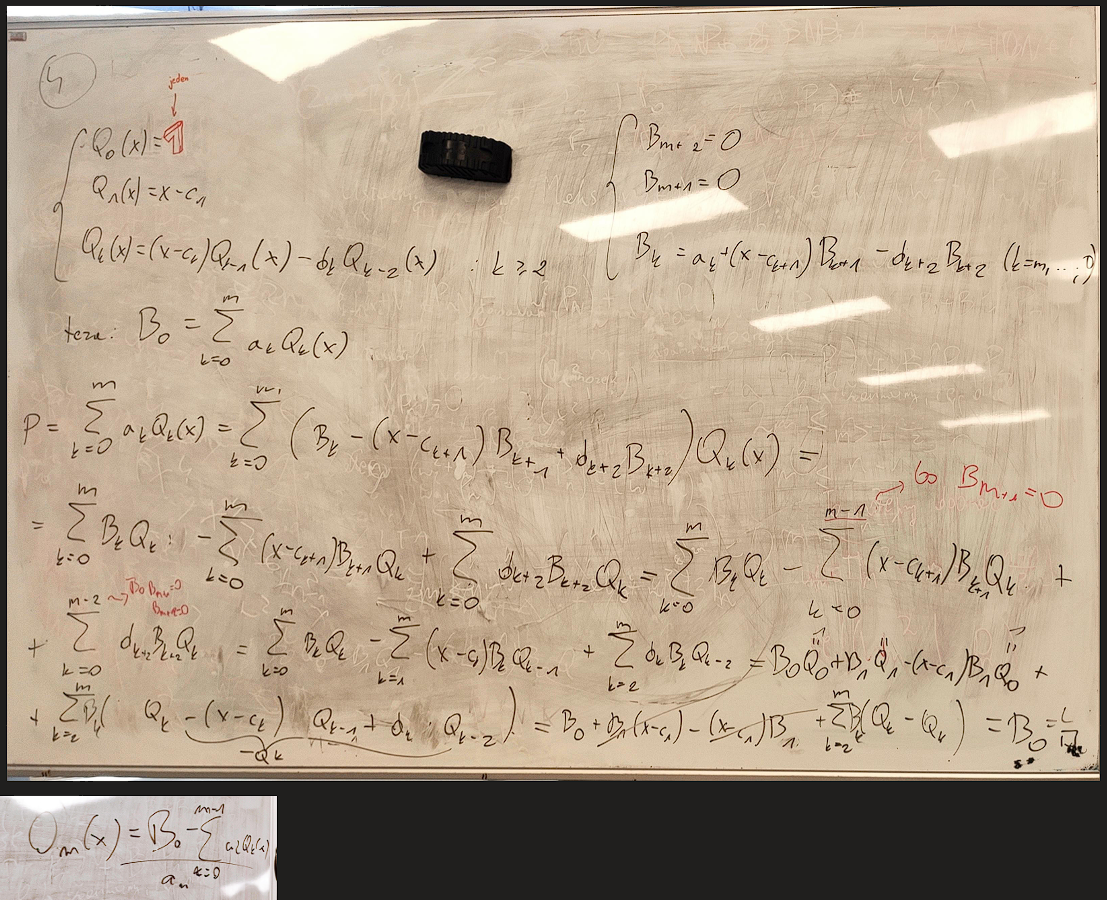 4
jeden
Q₀(x) = 1
Q₁(x) = x - c₁
Qₖ(x) = (x - cₖ) Qₖ₋₁(x) - dₖ Qₖ₋₂(x) ; k ≥ 2
Bₘ₊₂ = 0
Bₘ₊₁ = 0
Bₖ = aₖ + (x - cₖ₊₁) Bₖ₊₁ - dₖ₊₂ Bₖ₊₂ (k = m, ..., 0)
teza: B₀ = ∑_{k=0}^{m} aₖ Qₖ(x)
P = ∑_{k=0}^{m} aₖ Qₖ(x) = ∑_{k=0}^{m} (Bₖ - (x - cₖ₊₁) Bₖ₊₁ + dₖ₊₂ Bₖ₊₂) Qₖ(x) =
→ bo Bₘ₊₁ = 0
= ∑_{k=0}^{m} Bₖ Qₖ - ∑_{k=0}^{m} (x - cₖ₊₁) Bₖ₊₁ Qₖ + ∑_{k=0}^{m} dₖ₊₂ Bₖ₊₂ Qₖ = ∑_{k=0}^{m} Bₖ Qₖ - ∑_{k=0}^{m-1} (x - cₖ₊₁) Bₖ₊₁ Qₖ +
→ Bo Bₘ₊₂ = 0
Bₘ₊₁ = 0
+ ∑_{k=0}^{m-2} dₖ₊₂ Bₖ₊₂ Qₖ = ∑_{k=0}^{m} Bₖ Qₖ - ∑_{k=1}^{m} (x - cₖ) Bₖ Qₖ₋₁ + ∑_{k=2}^{m} dₖ Bₖ Qₖ₋₂ = B₀ Q₀ + B₁ Q₁ - (x - c₁) B₁ Q₀ +
+ ∑_{k=2}^{m} Bₖ (Qₖ - (x - cₖ) Qₖ₋₁ + dₖ Qₖ₋₂) = B₀ + B₁ (x - c₁) - (x - c₁) B₁ + ∑_{k=2}^{m} Bₖ (Qₖ - Qₖ) = B₀ = L
-Qₖ
Qₘ(x) = B₀ - ∑_{k=0}^{m-1} aₖ Qₖ(x)
aₘ